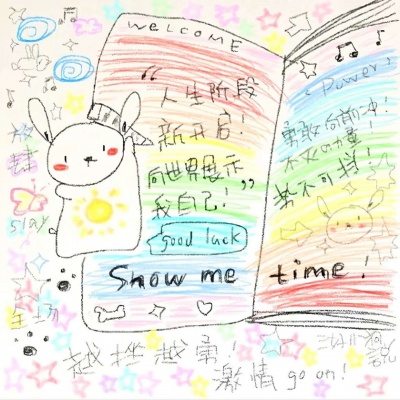 WELCOME
“人生阶段
新开启！
向世界展示
我自己！”
good luck
Show me time!
Power
勇敢向前冲！
势不可挡！
放肆
slay
人生
主场
越挫越勇！
激情 go on!